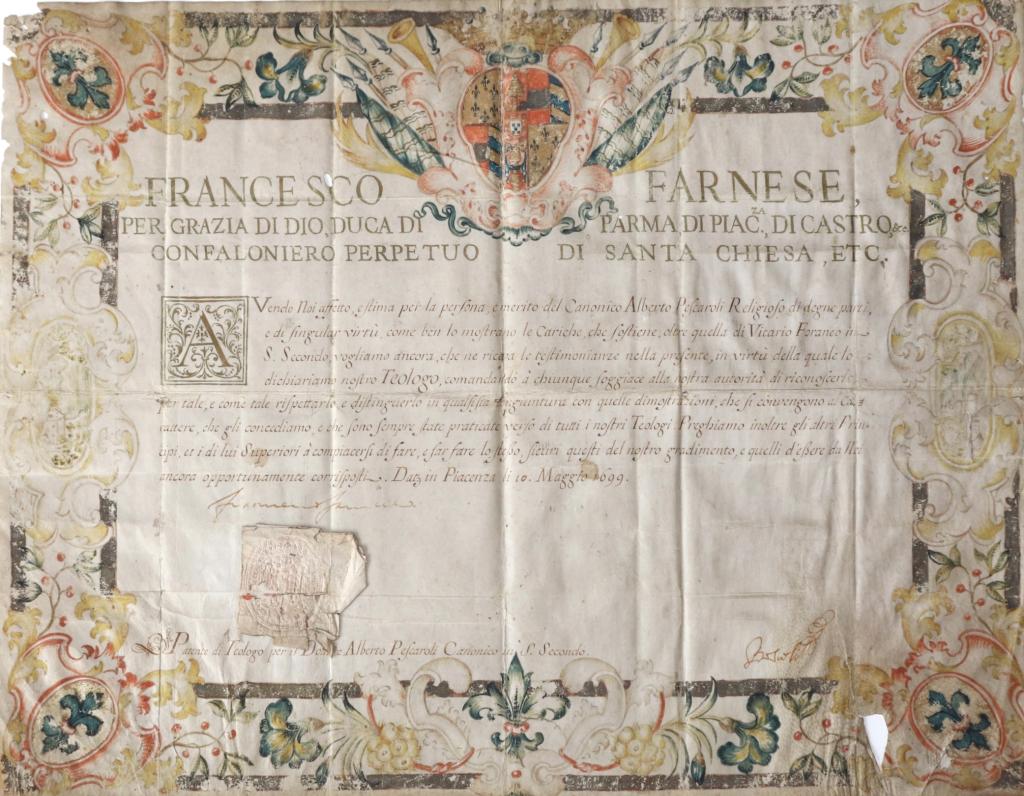 FRANCESCO FARNESE,
PER GRAZIA DI DIO, DUCA DI PARMA DI PIAC.ZA, DI CASTRO, &ce.
CONFALONIERO PERPETUO DI SANTA CHIESA, ETC.
AVendo Noi affetto, e stima per la persona, e merito del Canonico Alberto Pescaroli Religioso di degne parti,
e di singular virtù, come ben lo mostrano le Cariche, che sostiene, oltre quella di Vicario Foraneo in
S. Secondo, vogliamo ancora, che ne riceva le testimonianze nella presente, in virtù della quale lo
dichiariamo nostro Teologo, comandando à chiunque soggiace alla nostra autorità di riconoscerlo
per tale, e come tale rispettarlo, e distinguerlo in qualsisia congiuntura con quelle dimostrazioni, che si convengono al Ca=
rattere, che gli concediamo, e che sono sempre state praticate verso di tutti i nostri Teologi. Preghiamo inoltre gli altri Prin=
cipi, et i di lui Superiori à compiacersi di fare, e far fare lo stesso, sicuri questi del nostro gradimento, e quelli d'essere da Noi
ancora opportunamente corrisposti. Dat. in Piacenza li 10. Maggio 1699.
Patente di Teologo per il Alberto Pescaroli Canonico in S. Secondo.